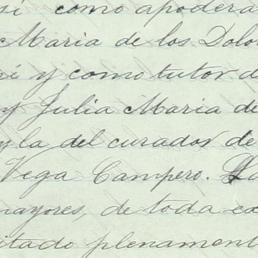 sí como apodera
Maria de los Dolo
sí y como tutor d
y Julia Maria de
y la del curador de
Vega Campero. La
mayores, de toda ca
itado plenament